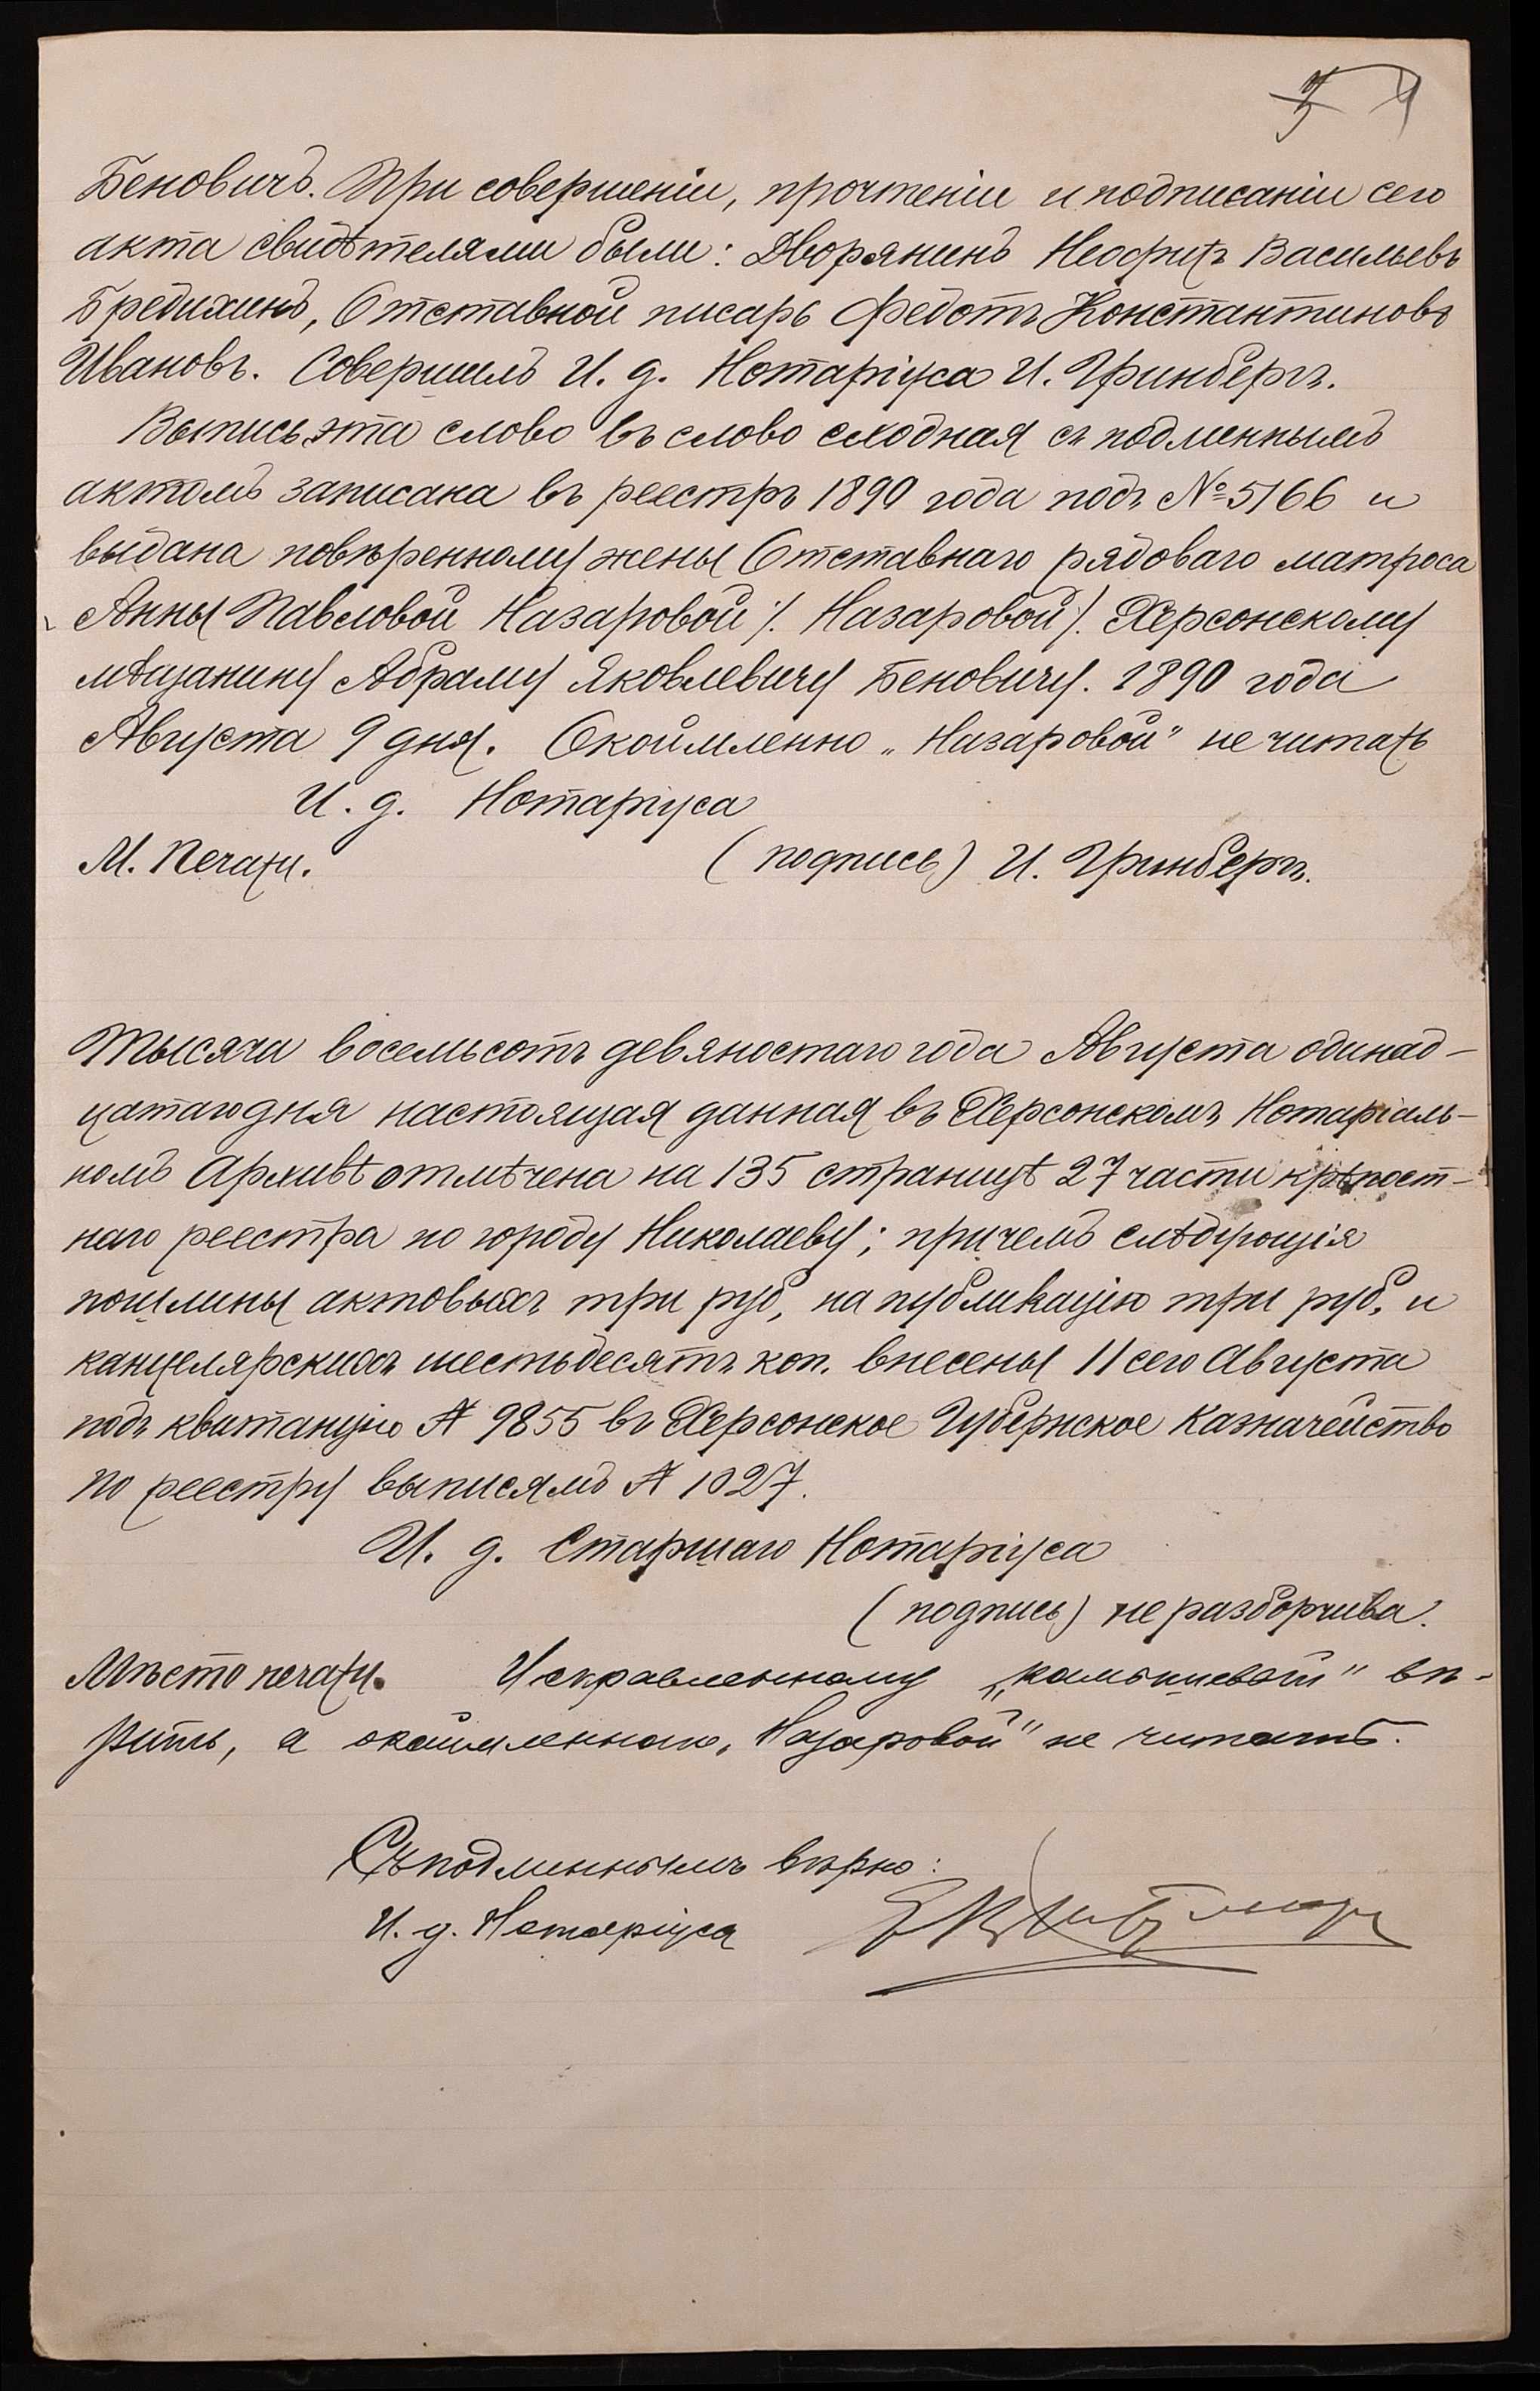 Беновичъ. При совершеніи, прочтеніи и подписаніи сего
акта свидѣтелями были: Дворянинъ Неофитъ Васильевъ
Бредихинъ, Отставной писарь Федотъ Константиновъ
Ивановъ. Совершилъ И. д. Нотаріуса И. Гринбергъ.
Выпись эта слово въ слово сходная съ подлиннымъ
актомъ записана въ реестръ 1890 года подъ № 5166 и
выдана повѣренному жены Отставнаго рядоваго матроса
Анны Павловой Назаровой /. Назаровой /. Херсонскому
мѣщанину Абраму Яковлевичу Беновичу. 1890 года
Августа 9 дня. Окоймленно „Назаровой" не читать
И. д. Нотаріуса
М. Печати. (подпись) И. Гринбергъ.
Тысяча восемьсотъ девяностаго года Августа одинад-
цатаго дня настоящая данная въ Херсонскомъ Нотаріаль-
номъ Архивѣ отмѣчена на 135 страницѣ 27 части крѣпост-
наго реестра по городу Николаеву; причемъ слѣдующія
пошлины актовыхъ три руб, на публикацію три руб, и
канцелярскихъ шестьдесятъ коп. внесены 11 сего Августа
подъ квитанцію № 9855 въ Херсонское Губернское Казначейство
по реестру выписямъ № 1027.
И. д. Старшаго Нотаріуса
(подпись) не разборчива.
Мѣсто печати. Исправленному вѣ-
рить, а окоймленнаго „Назаровой" не читать.
Съ подлиннымъ вѣрно:
И. д. Нотаріуса